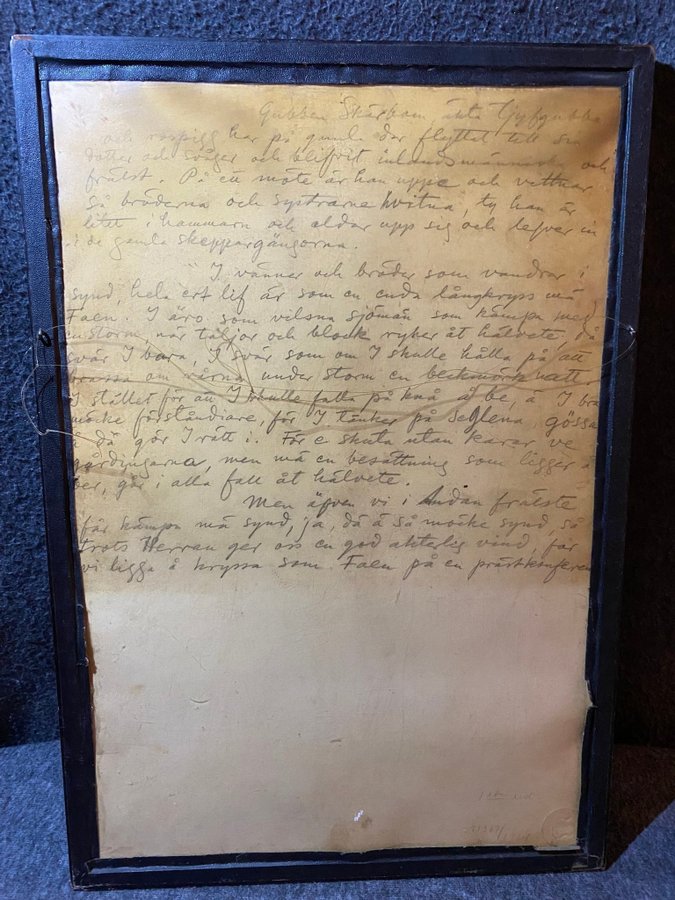 Gubben Skärbom, äkta Tjyfgubbe
och rospigg har på gamla dar flyttat till sin
dotter och svåger och blifvit inlandsmänniska och
frälst. På ett möte är han uppe och vittnar
så bröderna och systrarne hvitna, ty han är
litet i hammarn och eldar upp sig och lefver in
i de gamla skeppargängorna.
"I vänner och bröder som vandrar i
synd, hela ert lif är som en enda långkryss må
Faen. I äro som vilsna sjömän som kämpa med
en storm, när taljor och block ryker åt hälvete, då
svär I bara, I svär som om I skulle hålla på att
om rårna under storm en beckmörk natt
I stället för att I skulle falla på knä å be, å I bra
möcke förståndiare, för I tänker på seglena, gössar
då gör I rätt i. För e skuta utan karar ve
gårdingarna, men må en besättning som ligger å
ber, går i alla fall åt hälvete.
Men äfven vi i Andan frälste
får kämpa må synd, ja, då ä så möcke synd, så
trots Herran ger oss en god akterlig vind, får
vi ligga å kryssa som Faen på en prästkonferens